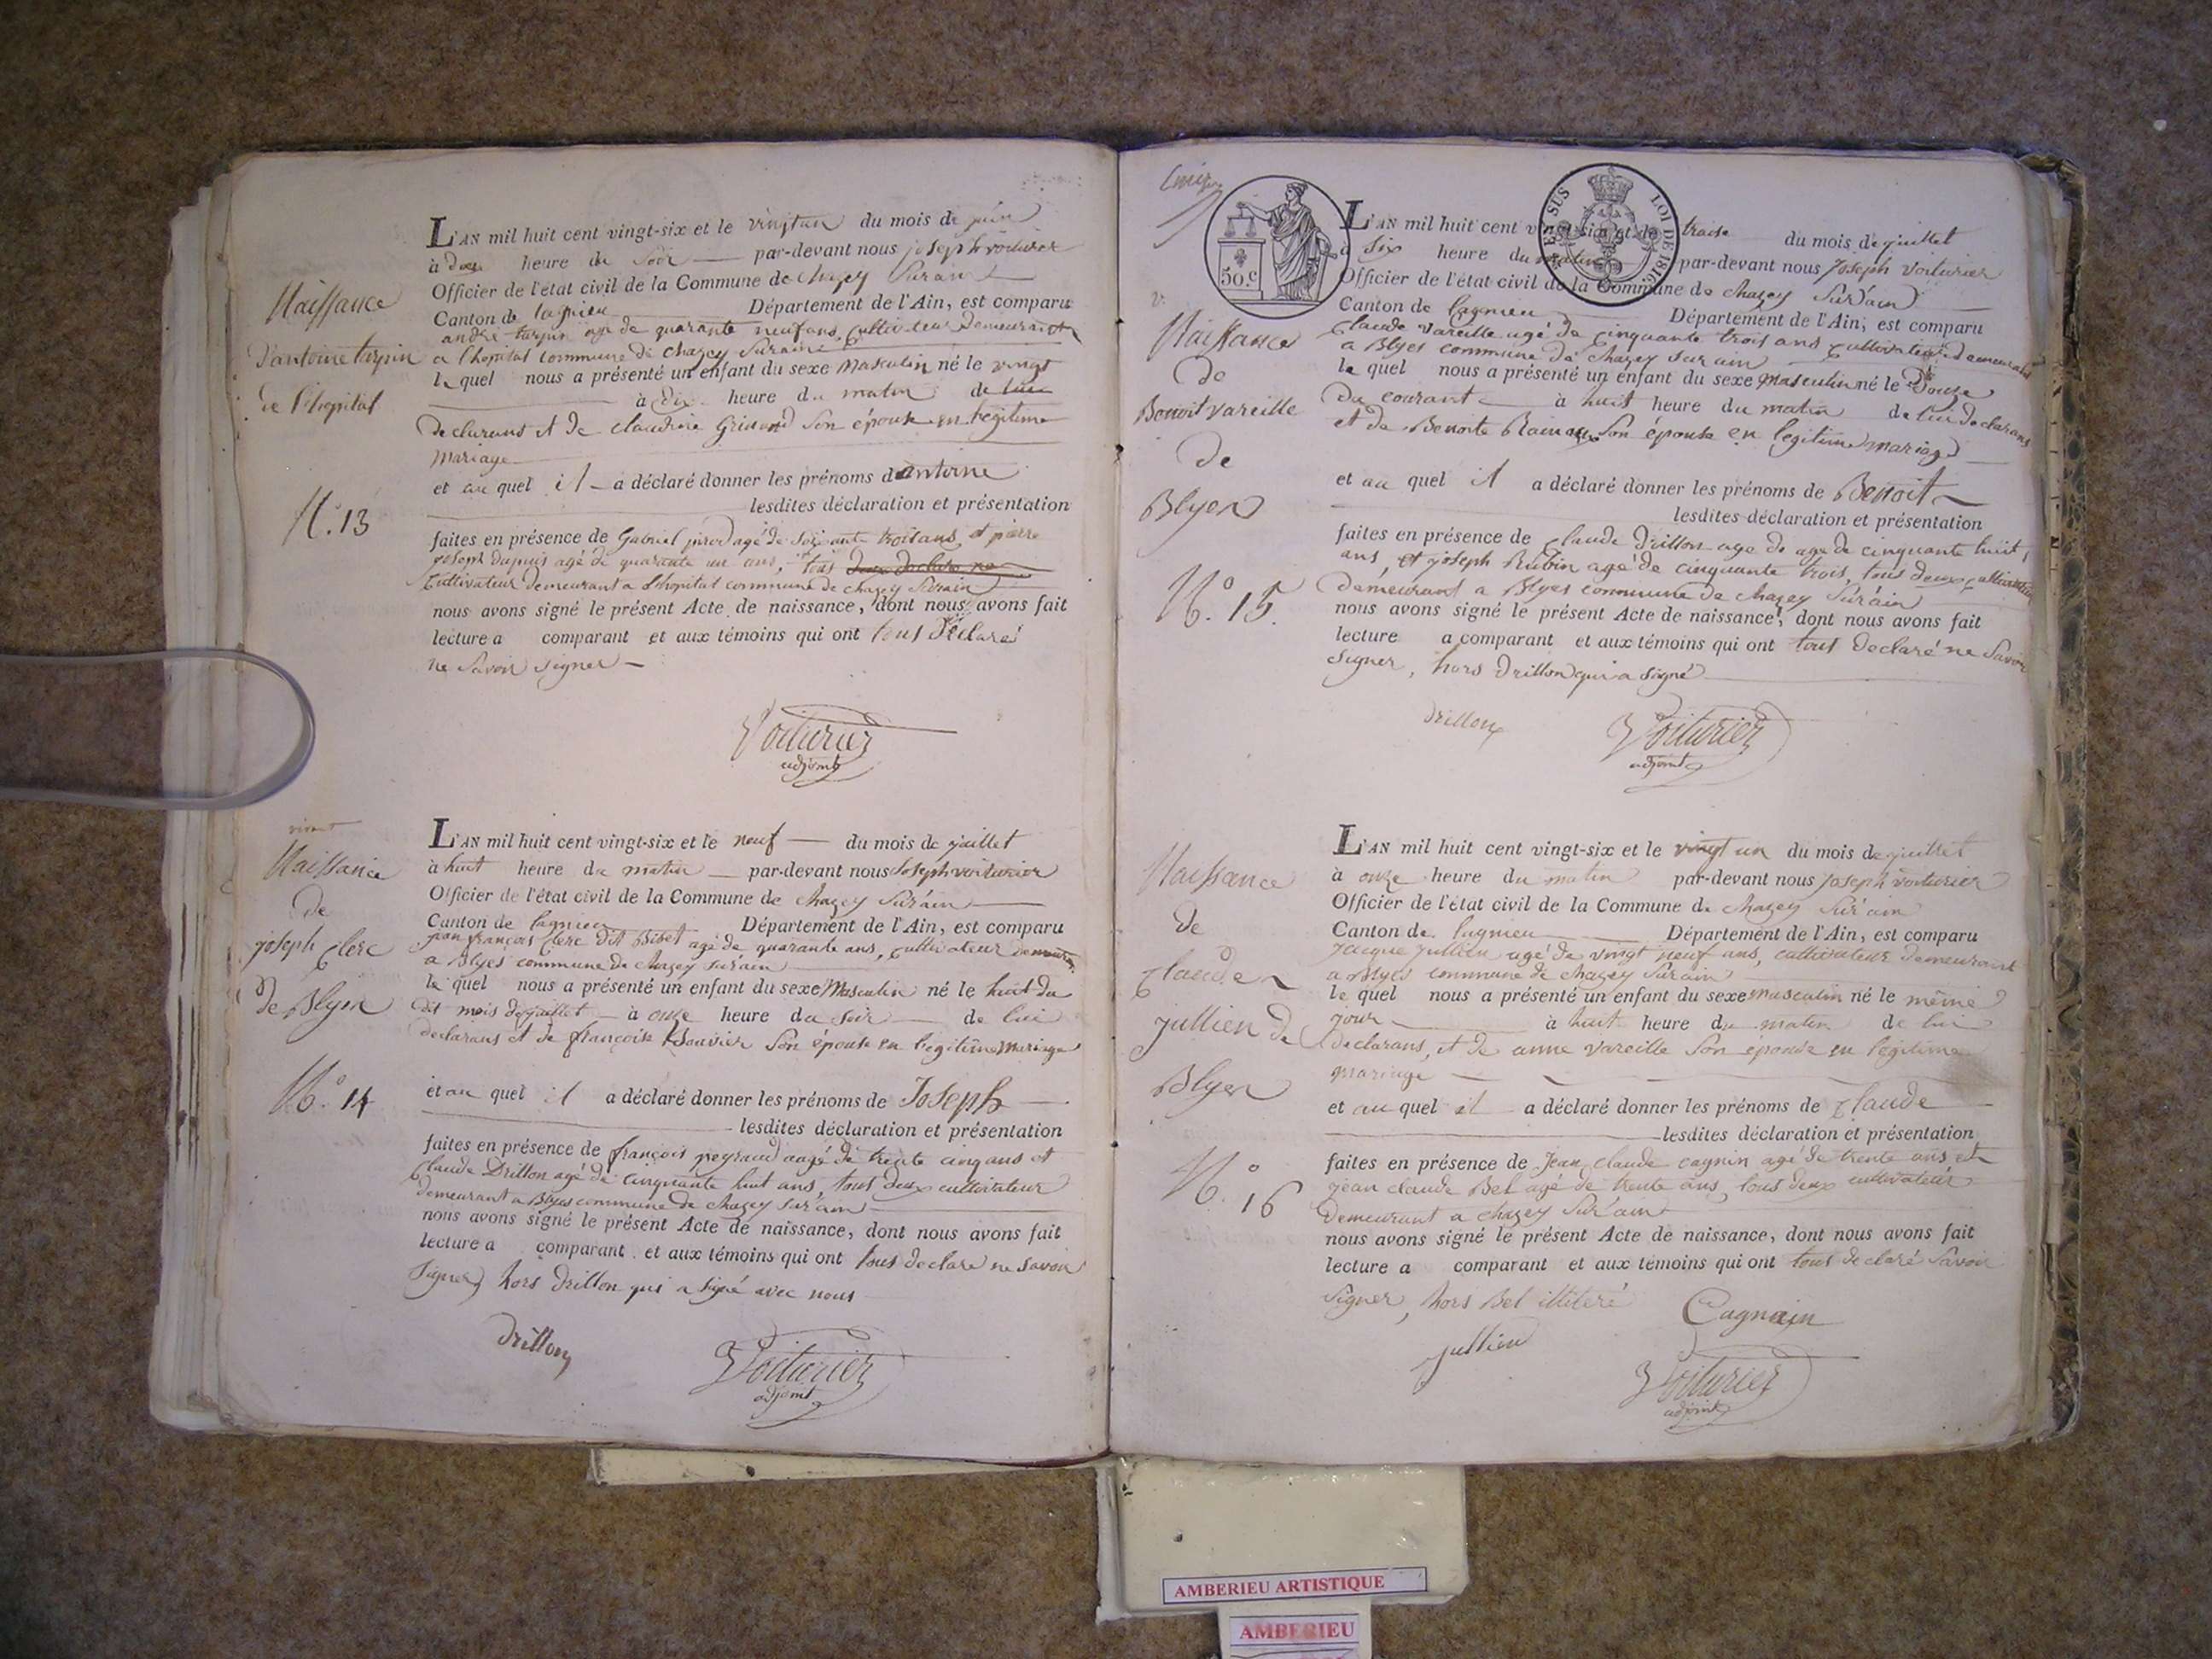 L'AN mil huit cent vingt-six et le vingtun du mois de juin
à heure du Soir par-devant nous joseph voiturier
Officier de l'état civil de la Commune de chazey Surain
Canton de lagnieu Département de l'Ain, est comparu
andré tarpin agé de quarante neuf ans, cultivateur Demeurant
a l'hopital commune de chazey Surain
le quel nous a présenté un enfant du sexe Masculin né le vingt
à dix heure du matin de lui
declarans et de claudine Son épouse en legitime
mariage
et au quel il a déclaré donner les prénoms d'antoine
lesdites déclaration et présentation
faites en présence de Gabriel agé de Soixante trois ans et pierre
joseph dupuis agé de quarante un ans, tous
Cultivateur demeurant a l'hopital commune de chazey Surain
nous avons signé le présent Acte de naissance, dont nous avons fait
lecture a comparant et aux témoins qui ont tous Déclaré
ne Savoir signer
Voiturier
adjoint
Naissance
d'antoine tarpin
de l'hopital
N.° 13
vivant
Naissance
de
joseph Clerc
de Blyes
N.° 14
L'AN mil huit cent vingt-six et le neuf du mois de juillet
à huit heure du matin par-devant nous Joseph voiturier
Officier de l'état civil de la Commune de chazey Sur'ain
Canton de lagnieu Département de l'Ain, est comparu
jean françois Clerc dit Bibet agé de quarante ans, cultivateur demeurant
a Blyes commune de chazey Sur'ain
le quel nous a présenté un enfant du sexe Masculin né le huit du
dit mois de juillet à onze heure du Soir de lui
declarans et de françoise Son epouse en legitime mariage
et au quel il a déclaré donner les prénoms de Joseph
lesdites déclaration et présentation
faites en présence de françois peyraud agé de trente cinq ans et
Claude Drillon agé de cinquante huit ans, tous deux cultivateur
demeurant a Blyes commune de chazey Sur'ain
nous avons signé le présent Acte de naissance, dont nous avons fait
lecture a comparant et aux témoins qui ont tous declaré ne savoir
signer, hors Drillon qui a signé avec nous
Drillon
Voiturier
adjoint
50.c
EN SUS LOI DE 1816
L'AN mil huit cent vingt-six et le treise du mois de juillet
à Six heure du matin par-devant nous Joseph Voiturier
Officier de l'état civil de la Commune de chazey Sur'ain
Canton de lagnieu Département de l'Ain, est comparu
Claude Vareille agé de Cinquante trois ans Cultivateur demeurant
a Blyes commune de chazey sur ain
le quel nous a présenté un enfant du sexe masculin né le Douze
du courant à huit heure du matin de lui declarans
et de Benoite Son épouse en legitime mariage
et au quel il a déclaré donner les prénoms de Benoit
lesdites déclaration et présentation
faites en présence de Claude Drillon age de age de cinquante huit
ans, et joseph Rubin agé de cinquante trois, tous deux cultivateur
demeurant a Blyes commune de chazey Sur'ain
nous avons signé le présent Acte de naissance, dont nous avons fait
lecture a comparant et aux témoins qui ont tous declaré ne Savoir
signer, hors Drillon qui a signé
Drillon
Voiturier
adjoint
Naissance
de
Benoit vareille
de
Blyes
N.° 15.
Naissance
de
Claude
jullien de
Blyes
N.° 16
L'AN mil huit cent vingt-six et le vingt un du mois de juillet
à onze heure du matin par-devant nous Joseph voiturier
Officier de l'état civil de la Commune de chazey Sur'ain
Canton de lagnieu Département de l'Ain, est comparu
Jacque jullien agé de vingt neuf ans, cultivateur demeurant
a Blyes commune de chazey Surain
le quel nous a présenté un enfant du sexe masculin né le même
jour à huit heure du matin de lui
declarans, et de anne vareille Son épouse en legitime
mariage
et au quel il a déclaré donner les prénoms de Claude
lesdites déclaration et présentation
faites en présence de Jean claude cagnin agé de trente ans et
jean claude Bel agé de trente ans, tous deux cultivateur
Demeurant a chazey Sur'ain
nous avons signé le présent Acte de naissance, dont nous avons fait
lecture a comparant et aux témoins qui ont tous declaré Savoir
Signer, hors Bel illiteré
Cagnain
jullien
Voiturier
adjoint
AMBERIEU ARTISTIQUE
AMBERIEU